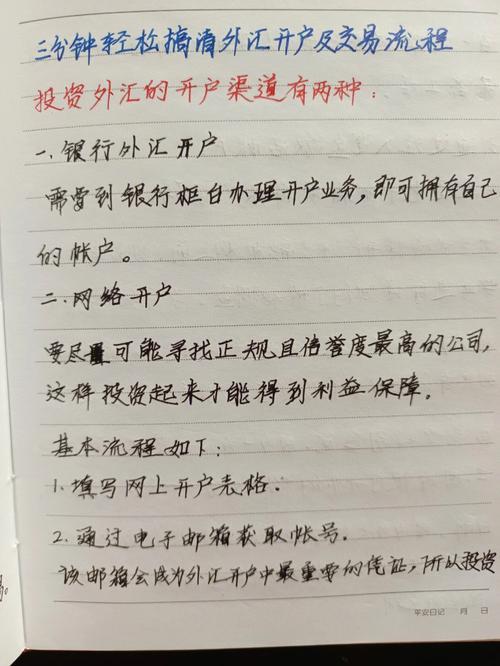 三分钟轻松搞清外汇开户及交易流程
投资外汇的开户渠道有两种：
一.银行外汇开户
需要到银行柜台办理开户业务，即可拥有自己
的帐户。
二.网络开户
要尽量可能寻找正规且信誉度最高的公司，
这样投资起来才能得到利益保障。
基本流程如下：
1.填写网上开户表格.
2.通过电子邮箱获取帐号.
该邮箱会成为外汇开户中最重要的凭证，所以投资
平安日记 月 日